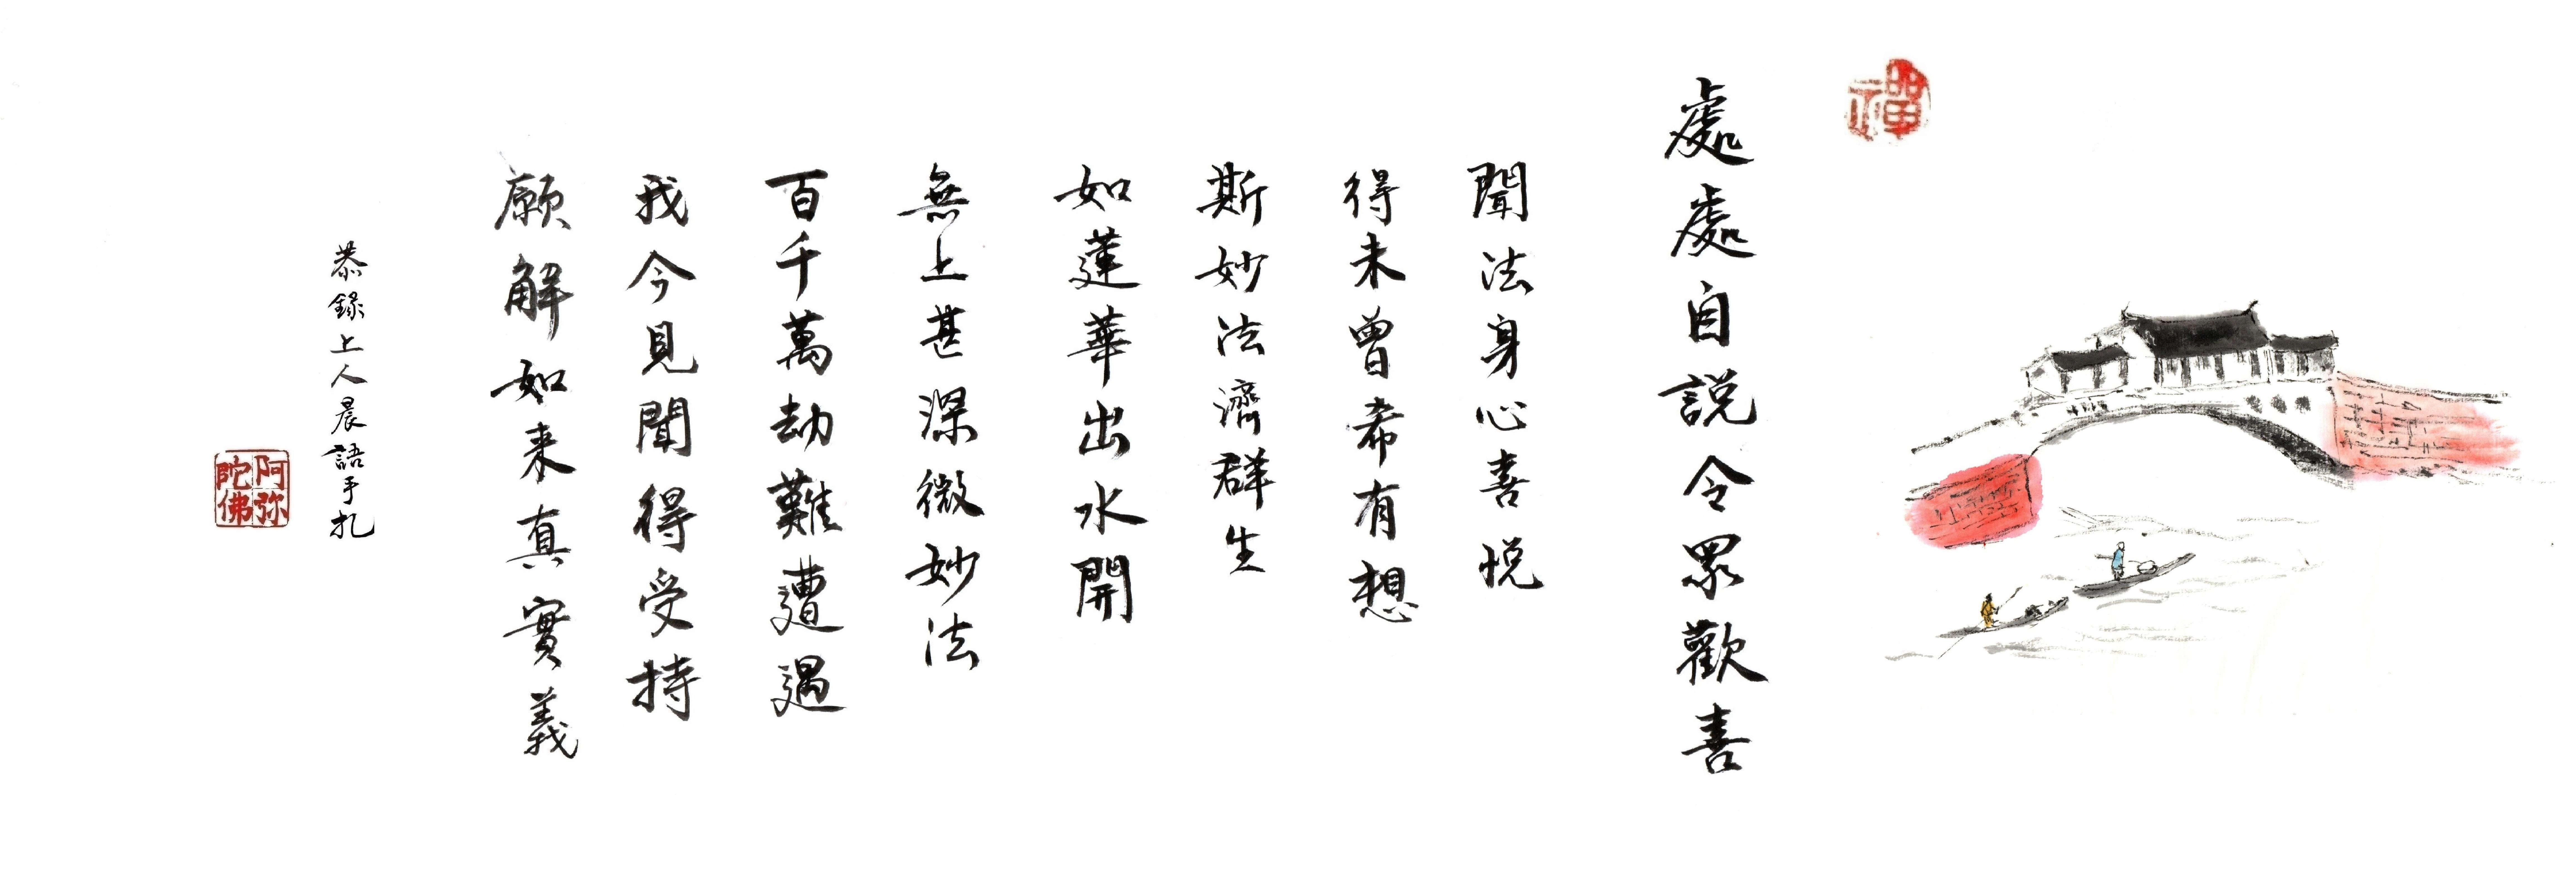 禪
處處自説令眾歡喜
聞法身心喜悅
得未曾希有想
斯妙法濟群生
如蓮華出水開
無上甚深微妙法
百千萬劫難遭遇
我今見聞得受持
願解如来真實義
恭錄上人晨語手札
阿弥
陀佛